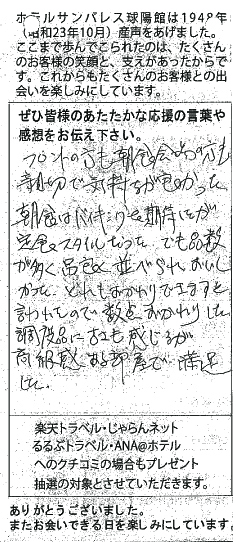 ホテルサンパレス球陽館は1948年
(昭和23年10月)産声をあげました。
ここまで歩んでこられたのは、たくさん
のお客様の笑顔と、支えがあったからで
す。これからもたくさんのお客様との出
会いを楽しみにしています。
ぜひ皆様のあたたかな応援の言葉や
感想をお伝え下さい。
フロントの方も朝食会場の方も
親切で気持ちが良かった
朝食はバイキングを期待したが
定食スタイルだった。でも品数
が多く品良く並べられおいし
かった。どれもおかわりできますと
言われたので数点おかわりした
調度品に古さも感じるが
高級感ある部屋で満足
した。
楽天トラベル・じゃらんネット
るるぶトラベル・ANA@ホテル
へのクチコミの場合もプレゼント
抽選の対象とさせていただきます。
ありがとうございました。
またお会いできる日を楽しみにしています。